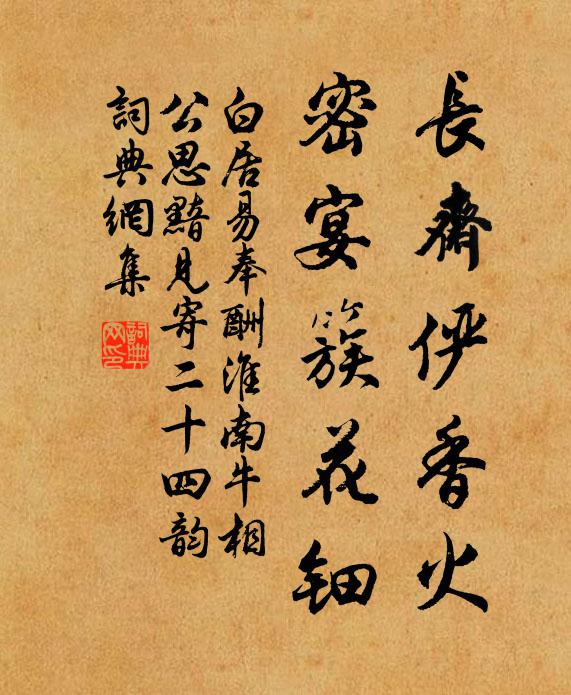 長齋俨香火
密宴簇花钿
白居易奉酬淮南牛相
公思黯見寄二十四韵
詞典網集
詞典网印